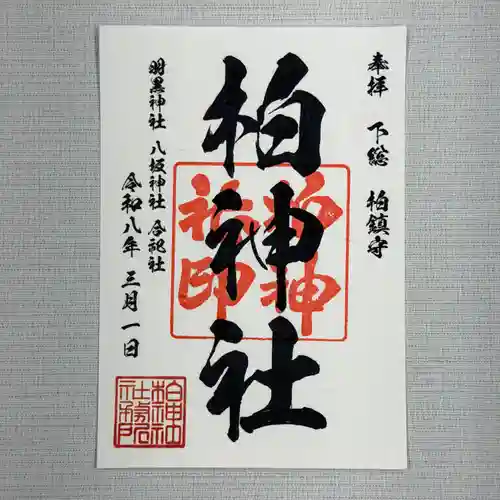 奉拝 下総 柏鎮守
柏神社
羽黒神社 八坂神社 合祀社
令和八年 三月一日
柏神
社印